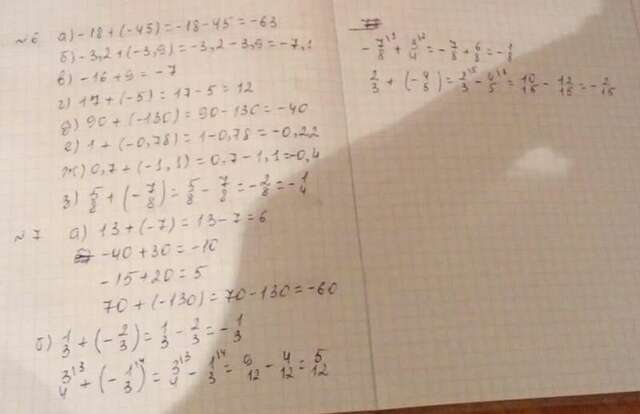 №6 а) -18 + (-45) = -18 - 45 = -63
б) -3,2 + (-3,9) = -3,2 - 3,9 = -7,1
в) -16 + 9 = -7
г) 17 + (-5) = 17 - 5 = 12
д) 90 + (-130) = 90 - 130 = -40
е) 1 + (-0,78) = 1 - 0,78 = -0,22
ж) 0,7 + (-1,1) = 0,7 - 1,1 = -0,4
з) 5/8 + (-7/8) = 5/8 - 7/8 = -2/8 = -1/4
№7 а) 13 + (-7) = 13 - 7 = 6
-40 + 30 = -10
-15 + 20 = 5
70 + (-130) = 70 - 130 = -60
б) 1/3 + (-2/3) = 1/3 - 2/3 = -1/3
3/4 + (-1/3) = 3/4 - 1/3 = 9/12 - 4/12 = 5/12
-7/8 + 3/4 = -7/8 + 6/8 = -1/8
2/3 + (-4/5) = 2/3 - 4/5 = 10/15 - 12/15 = -2/15